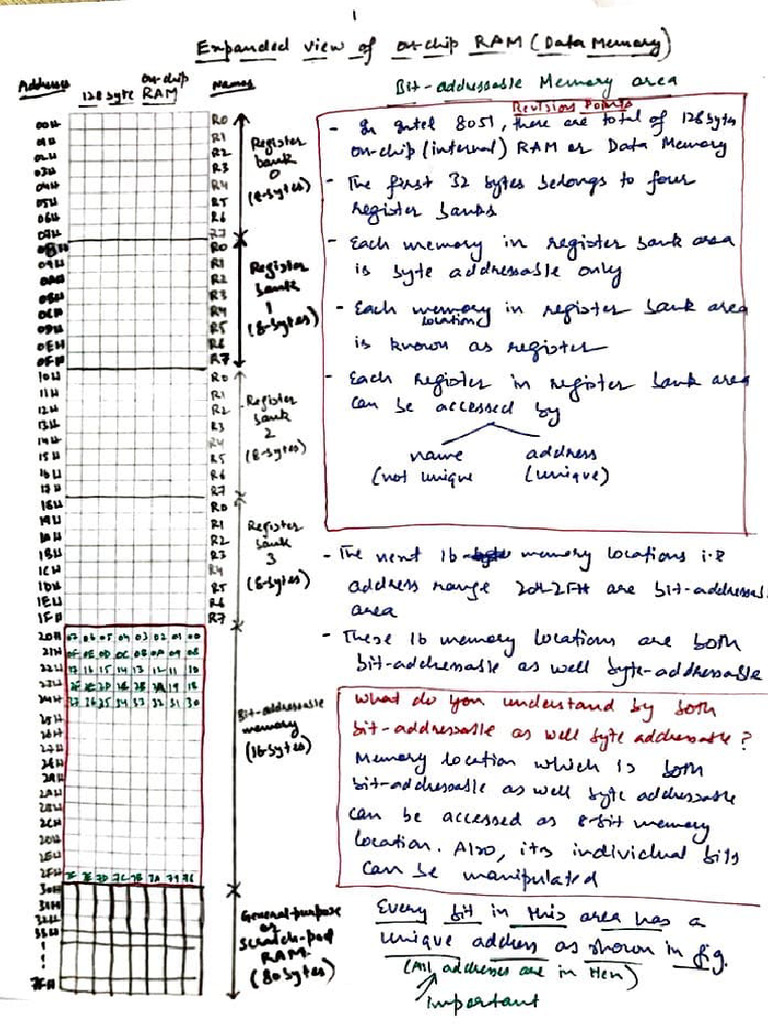 1
Expanded view of on-chip RAM (Data Memory)
Address 128 byte on-chip RAM Names
00H R0
01H R1
02H R2
03H R3
04H R4
05H R5
06H R6
07H R7
Register bank 0 (8-bytes)
08H R0
09H R1
0AH R2
0BH R3
0CH R4
0DH R5
0EH R6
0FH R7
Register bank 1 (8-bytes)
10H R0
11H R1
12H R2
13H R3
14H R4
15H R5
16H R6
17H R7
Register bank 2 (8-bytes)
18H R0
19H R1
1AH R2
1BH R3
1CH R4
1DH R5
1EH R6
1FH R7
Register bank 3 (8-bytes)
20H 07 06 05 04 03 02 01 00
21H 0F 0E 0D 0C 0B 0A 09 08
22H 17 16 15 14 13 12 11 10
23H 1A 19 18
24H 34 33 32 31 30
25H
26H
27H
2AH
2CH
2DH
2EH
2FH 7D 7C 7B 7A 79
Bit-addressable memory (16-bytes)
30H
31H
32H
33H
7FH
General-purpose or scratch-pad RAM. (80-bytes)
Bit-addressable Memory area
Revision Points
- In Intel 8051, there are total of 128 bytes
on-chip (internal) RAM or Data Memory
- The first 32 bytes belongs to four
register banks
- Each memory in register bank area
is byte addressable only
- Each memory location in register bank area
is known as register
- Each register in register bank area
can be accessed by
name address
(not unique (unique)
- The next 16 memory locations i.e
address range 20H-2FH are bit-addressable
area
- These 16 memory locations are both
bit-addressable as well byte-addressable
What do you understand by both
bit-addressable as well byte addressable?
Memory location which is both
bit-addressable as well byte addressable
can be accessed as 8-bit memory
location. Also, its individual bits
can be manipulated
Every bit in this area has a
unique address as shown in fig.
(All addresses are in Hex)
important